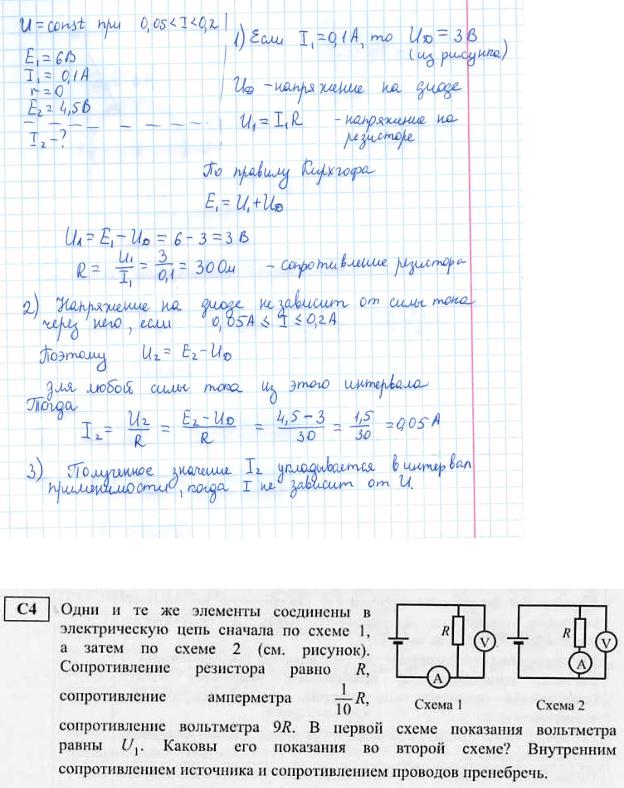 U = const при 0,05 < I < 0,2
E₁ = 6В
I₁ = 0,1А
r = 0
E₂ = 4,5В
I₂ - ?
1) Если I₁ = 0,1А, то U_D = 3В
(из рисунка)
U_D - напряжение на диоде
U₁ = I₁R - напряжение на
резисторе
По правилу Кирхгофа
E₁ = U₁ + U_D
U₁ = E₁ - U_D = 6 - 3 = 3В
R = U₁/I₁ = 3/0,1 = 30 Ом - сопротивление резистора
2) Напряжение на диоде не зависит от силы тока
через него, если 0,05А ≤ I ≤ 0,2А
Поэтому U₂ = E₂ - U_D
для любой силы тока из этого интервала
Тогда
I₂ = U₂/R = (E₂ - U_D)/R = (4,5 - 3)/30 = 1,5/30 = 0,05А
3) Полученное значение I₂ укладывается в интервал
применимости, когда I не зависит от U.
С4 Одни и те же элементы соединены в
электрическую цепь сначала по схеме 1,
а затем по схеме 2 (см. рисунок).
Сопротивление резистора равно R,
сопротивление амперметра 1/10 R,
сопротивление вольтметра 9R. В первой схеме показания вольтметра
равны U₁. Каковы его показания во второй схеме? Внутренним
сопротивлением источника и сопротивлением проводов пренебречь.
R V A
Схема 1
R V A
Схема 2